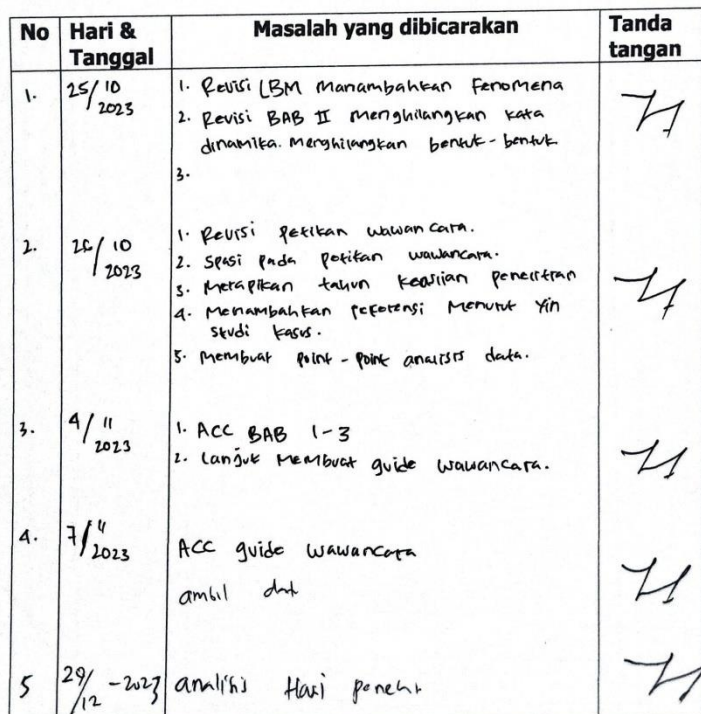 No Hari & Tanggal Masalah yang dibicarakan Tanda tangan
1. 25/10 2023 1. Revisi LBM Manambahkan Fenomena
2. Revisi BAB II menghilangkan kata
dinamika. Menghilangkan bentuk-bentuk
3.
2. 26/10 2023 1. Revisi petikan wawancara.
2. Spasi pada petikan wawancara.
3. Merapikan tahun keaslian penelitian
4. Menambahkan referensi Menurut Yin
studi kasus.
5. Membuat point-point analisis data.
3. 4/11 2023 1. ACC BAB 1-3
2. Lanjut Membuat guide wawancara.
4. 7/11 2023 ACC guide wawancara
ambil dat
5 29/12 - 2023 analisis Hasi